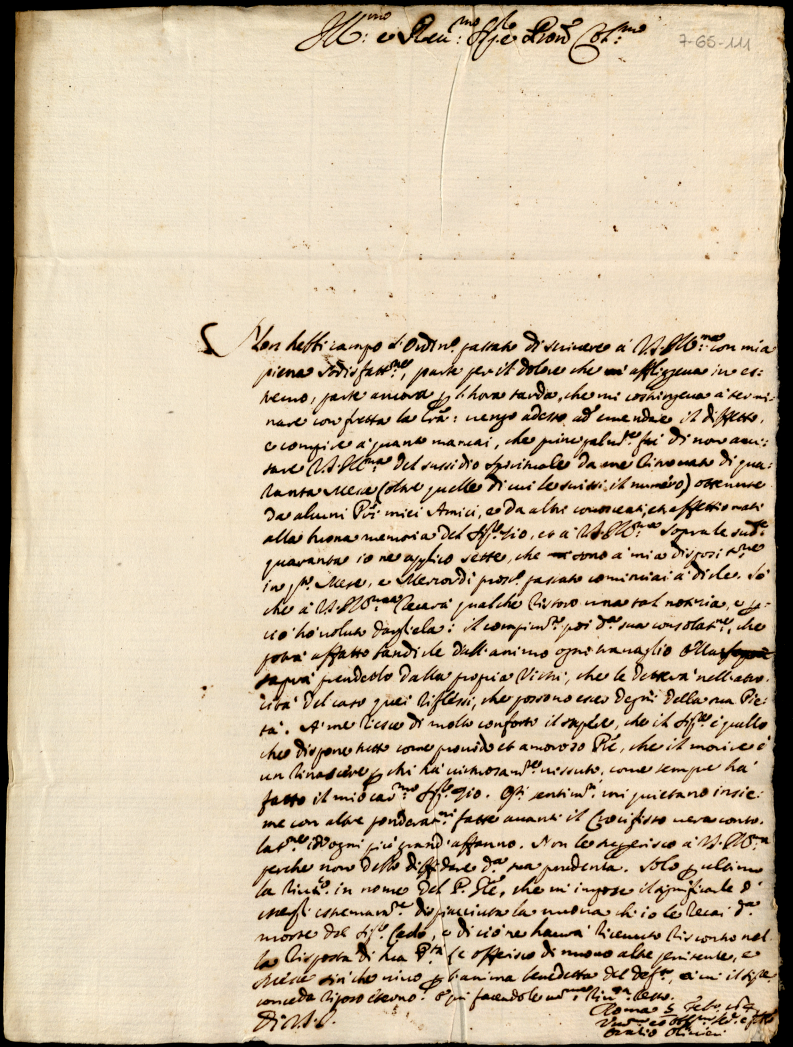 Ill:mo e Reu:mo Sig.re e Pron Col:mo
7-65-111
Non hebbi campo l'Ordin.o passato di scriuere à V.S.Ill:ma con mia
piena sodisfatt.ne, parte per il dolore che mi affliggeua in es-
tremo, parte ancora p l'hora tarda, che mi costringeua à termi-
nare con fretta la lra: uengo adesso ad' emendare il diffetto,
e compire à quanto mancai, che principalm.te fù di non aui-
sare V.S.Ill:ma del sussidio spirituale da me ritrouato di qua-
ranta Messe (oltre quelle di cui le scrissi il numero) ottenute
da alcuni Pri miei Amici, e da altri conoscenti, et affettionati
alla buona memoria del Sig.r Zio, et à V.S.Ill:ma Sopra le sud.te
quaranta io ne applico sette, che sono à mia disposit.ne
in q.to Mese, e Mercordì pross.o passato cominciai à dirle. Sò
che à V.S.Ill:ma recarà qualche ristoro una tal notitia, e p
ciò hò uoluto dargliela: il compim.to poi d.a sua consolat.ne, che
potrà affatto sbandirle dall'animo ogni trauaglio Ella
saprà prenderlo dalla propria Virtù, che le detterà nell'atro-
cità del caso quei riflessi, che possono esser degni della sua Pie-
tà. A me riesce di molto conforto il sapere, che il Sig.re è quello
che dispone tutto come prouido et amoroso Pre, che il morire è
un rinascere p chi hà uirtuosam.te uissuto, come sempre hà
fatto il mio car.mo Sig.r Zio. Q.ti sentim.ti mi quietano insie-
me con altre ponderat.ni fatte auanti il Crocifisso uera conso-
lat.ne d'ogni più grand'affanno. Non le suggerisco à V.S.Ill:ma
perche non deuo diffidare d.a sua prudenza. Solo p ultimo
la riuer.o in nome del P. Gle, che mi impose il significarle d'
essergli estremam.te dispiaciuta la nuoua ch'io le recai d.a
morte del Sig.r , e di ciò ne haurà riceuuto riscontro nel-
la risposta di sua P.tà Le offerisco di nuouo altre penitenze, e
Messe sin che uiuo p l'anima benedetta del def.to, à cui il Sig.re
conceda riposo eterno. E qui facendole um.ma riu.za resto.
Di V.S.
Roma 5 Feb.o
Oratio Oliuieri